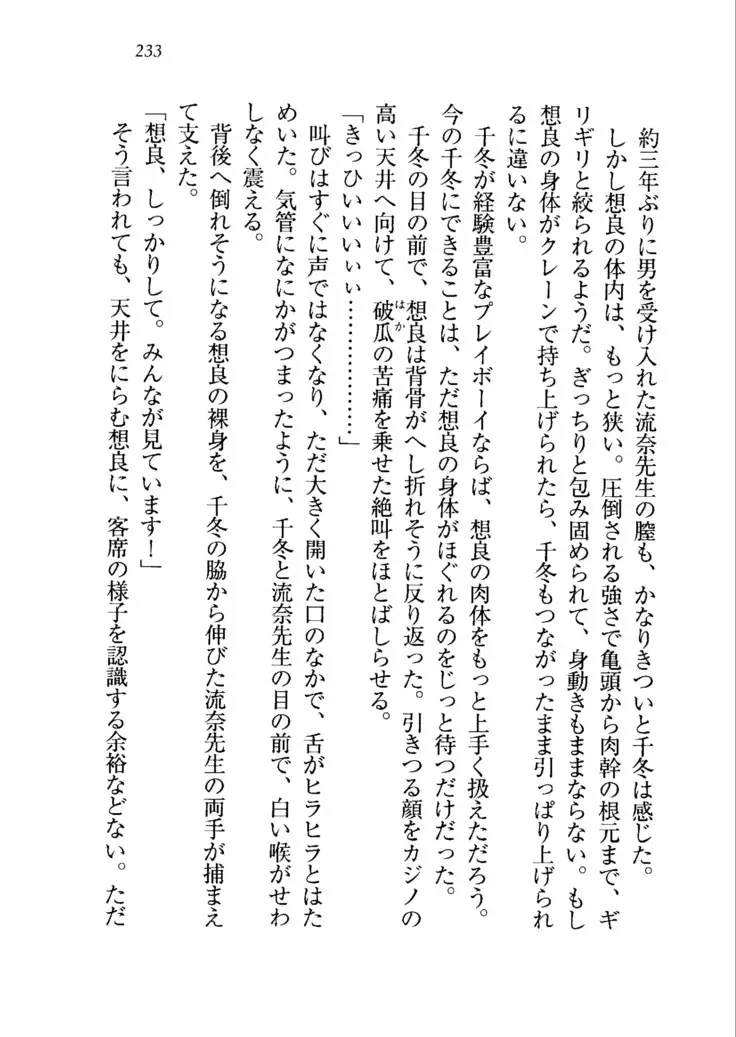 233
約三年ぶりに男を受け入れた流奈先生の膣も、かなりきついと千冬は感じた。
しかし想良の体内は、もっと狭い。圧倒される強さで亀頭から肉幹の根元まで、ギ
リギリと絞られるようだ。ぎっちりと包み固められて、身動きもままならない。もし
想良の身体がクレーンで持ち上げられたら、千冬もつながったまま引っぱり上げられ
るに違いない。
千冬が経験豊富なプレイボーイならば、想良の肉体をもっと上手く扱えただろう。
今の千冬にできることは、ただ想良の身体がほぐれるのをじっと待つだけだった。
千冬の目の前で、想良は背骨がへし折れそうに反り返った。引きつる顔をカジノの
高い天井へ向けて、破瓜はかの苦痛を乗せた絶叫をほとばしらせる。
「きっひいいいぃぃ………………」
叫びはすぐに声ではなくなり、ただ大きく開いた口のなかで、舌がヒラヒラとはた
めいた。気管になにかがつまったように、千冬と流奈先生の目の前で、白い喉がせわ
しなく震える。
背後へ倒れそうになる想良の裸身を、千冬の脇から伸びた流奈先生の両手が捕まえ
て支えた。
「想良、しっかりして。みんなが見ています！」
そう言われても、天井をにらむ想良に、客席の様子を認識する余裕などない。ただ